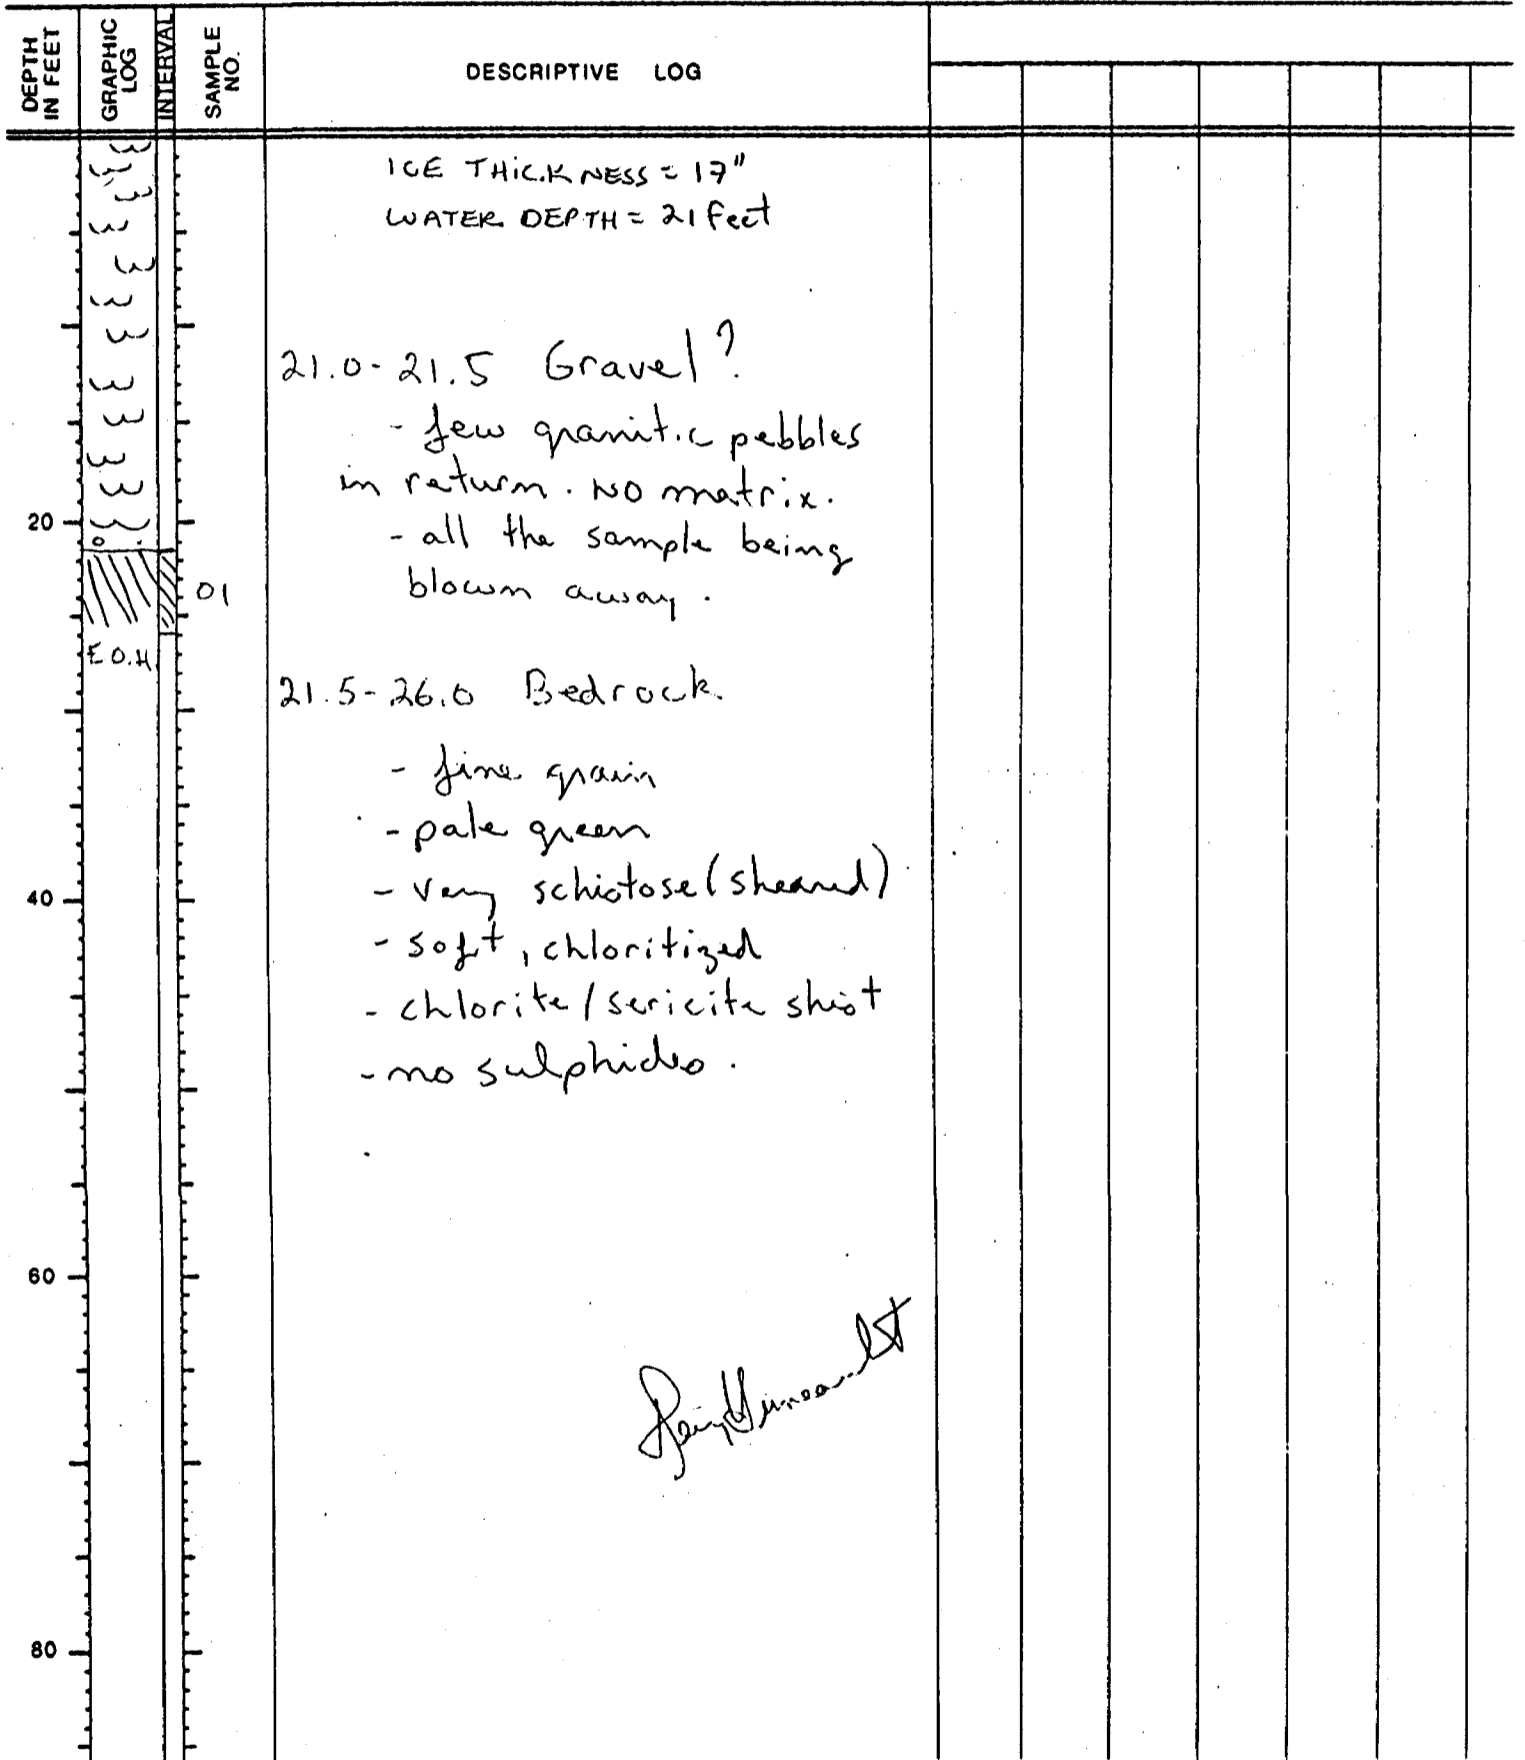 DEPTH IN FEET
GRAPHIC LOG
INTERVAL
SAMPLE NO.
DESCRIPTIVE LOG
ICE THICKNESS = 17"
WATER DEPTH = 21 feet
21.0-21.5 Gravel?
- few granitic pebbles
in return. NO matrix.
20
- all the sample being
blown away.
01
E.O.H
21.5-26.0 Bedrock.
- fine grain
- pale green
40
- very schistose (sheared)
- soft, chloritized
- chlorite/sericite shist
- no sulphides.
60
80